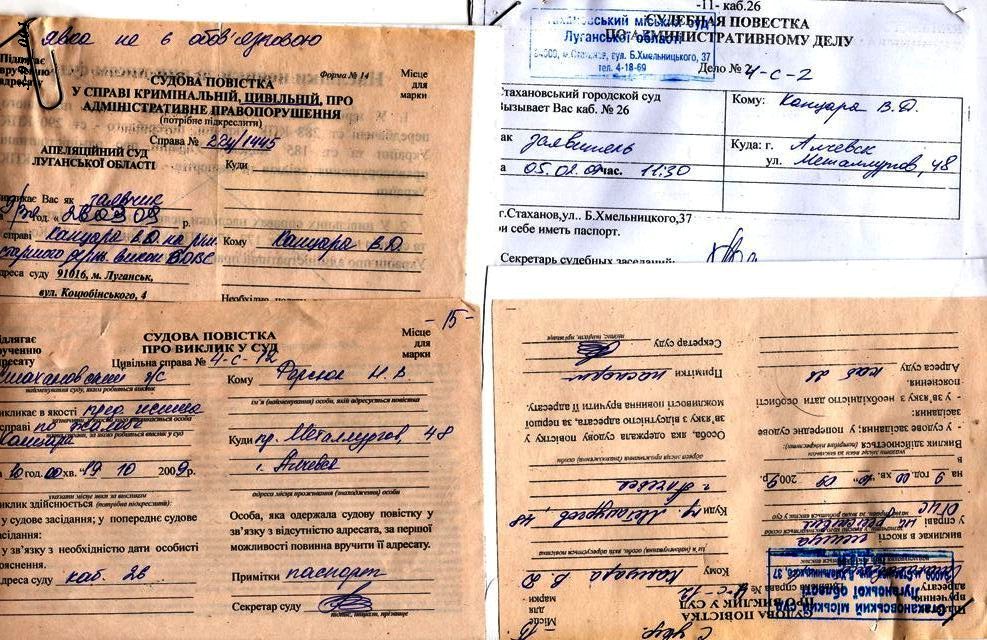 явка не є обов'язковою
Підлягає
врученню
адресату
Форма № 14
Місце
для
марки
СУДОВА ПОВІСТКА
У СПРАВІ КРИМІНАЛЬНІЙ, ЦИВІЛЬНІЙ, ПРО
АДМІНІСТРАТИВНЕ ПРАВОПОРУШЕННЯ
(потрібне підкреслити)
Справа № 22ц/1445
АПЕЛЯЦІЙНИЙ СУД
ЛУГАНСЬКОЇ ОБЛАСТІ
Куди
викликає Вас як
год. «26 03 09 р.
справі Канцара В.Д. на
Кому Канцара В.Д.
адреса суду 91016, м. Луганськ,
вул. Коцюбінського, 4
-11- каб.26
Стахановський міський суд
Луганської області
94000, м.Стаханов, вул. Б.Хмельницького, 37
тел. 4-18-69
СУДЕБНАЯ ПОВЕСТКА
ПО АДМИНИСТРАТИВНОМУ ДЕЛУ
Дело № 4-с-2
Стахановский городской суд
Вызывает Вас каб. № 26
Кому: Канцара В.Д.
как заявитель
Куда: г. Алчевск
ул. Металлургов, 48
на 05.02.09 час. 11:30
г.Стаханов,ул.. Б.Хмельницкого,37
при себе иметь паспорт.
Секретарь судебных заседаний:
- 15 -
Підлягає
врученню
адресату
СУДОВА ПОВІСТКА
ПРО ВИКЛИК У СУД
Місце
для
марки
Цивільна справа № 4-с-12
Стахановский г/с
найменування суду, якого робиться виклик
Кому
ім'я (найменування) особи, якій адресується повістка
викликає в якості пред. истца
справі по жалобе
Канцара
Куди пр. Металлургов, 48
г. Алчевск
на 10 год. 00 хв. "19 10 2009 р.
указати місце явки за викликом
адреса місця проживання (знаходження) особи
виклик здійснюється (потрібно підкреслити):
у судове засідання; у попереднє судове
засідання:
у зв'язку з необхідністю дати особисті
пояснення.
Особа, яка одержала судову повістку у
зв'язку з відсутністю адресата, за першої
можливості повинна вручити її адресату.
Адреса суду каб. 26
Примітки паспорт
Секретар суду
підпис, ініціали, прізвище
Стахановський міський суд
Луганської області
94000, м.Стаханов, вул. Б.Хмельницького, 37
СУДОВА ПОВІСТКА
ПРО ВИКЛИК У СУД
Місце
для
марки
Цивільна справа № 4-с-12
Кому Канцара В Д
ім'я (найменування) особи, якій адресується повістка
викликає в якості истца
у справі
Куди пр. Металлургов, 48
г. Алчевск
на 9 год. 00 хв. 2009 р.
адреса місця проживання (знаходження) особи
Виклик здійснюється (потрібно підкреслити):
- у судове засідання; у попереднє судове
засідання;
- у зв'язку з необхідністю дати особисті
пояснення.
Особа, яка одержала судову повістку у
зв'язку з відсутністю адресата, за першої
можливості повинна вручити її адресату.
Адреса суду каб 26
Примітки паспорт
Секретар суду
підпис, ініціали, прізвище